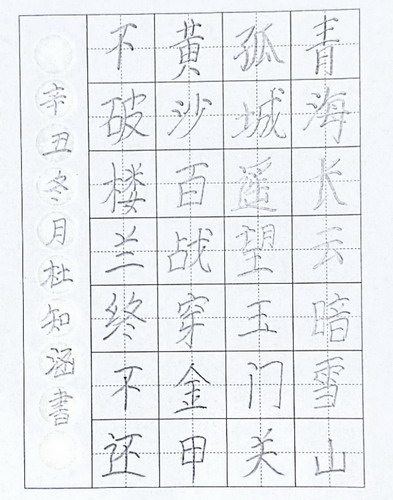 青海长云暗雪山
孤城遥望玉门关
黄沙百战穿金甲
不破楼兰终不还
辛丑冬月杜知涵書